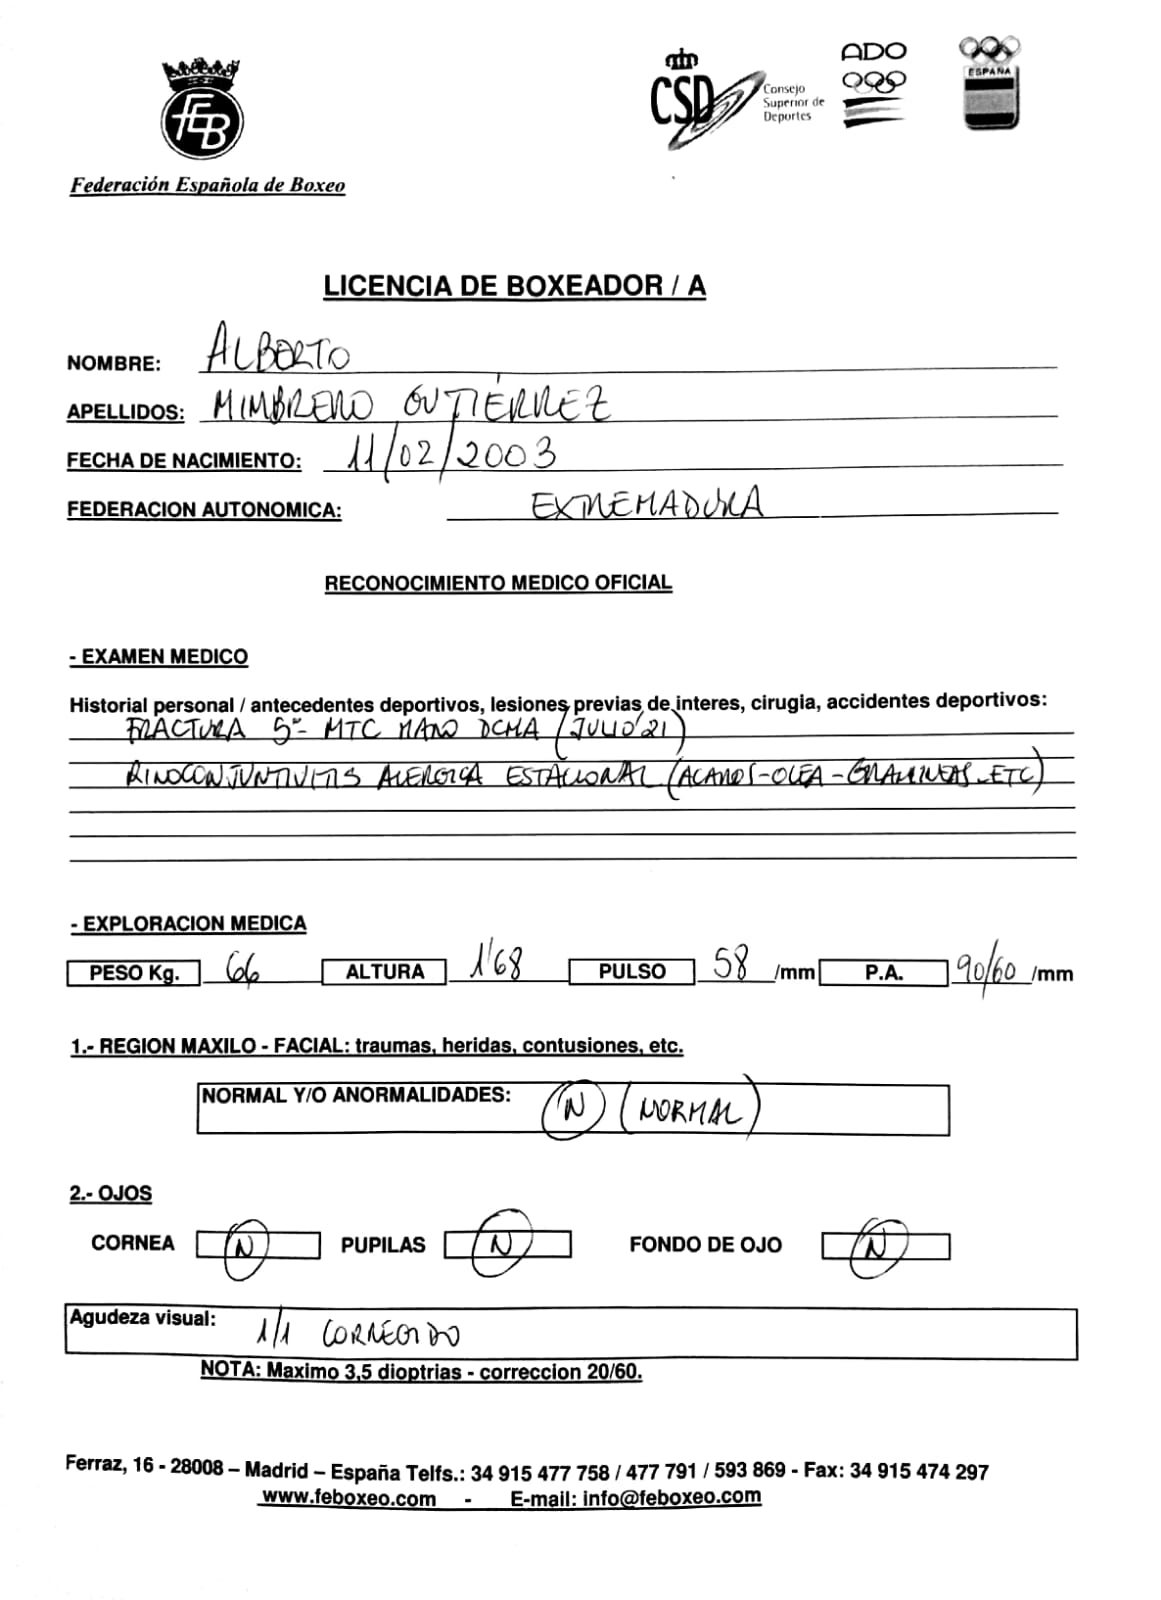 FEB
Federación Española de Boxeo
CSD
Consejo
Superior de
Deportes
ADO
ESPAÑA
LICENCIA DE BOXEADOR / A
NOMBRE: ALBERTO
APELLIDOS: MIMBRERO GUTIÉRREZ
FECHA DE NACIMIENTO: 11/02/2003
FEDERACION AUTONOMICA: EXTREMADURA
RECONOCIMIENTO MEDICO OFICIAL
- EXAMEN MEDICO
Historial personal / antecedentes deportivos, lesiones previas de interes, cirugia, accidentes deportivos:
FRACTURA 5º MTC MANO DCHA (JULIO'21)
RINOCONJUNTIVITIS ALERGICA ESTACIONAL (ACAROS-OLEA-GRAMINEAS-ETC)
- EXPLORACION MEDICA
PESO Kg. 66 ALTURA 1'68 PULSO 58 /mm P.A. 90/60 /mm
1.- REGION MAXILO - FACIAL: traumas, heridas, contusiones, etc.
NORMAL Y/O ANORMALIDADES: N (NORMAL)
2.- OJOS
CORNEA N PUPILAS N FONDO DE OJO N
Agudeza visual: 1/1 CORREGIDO
NOTA: Maximo 3,5 dioptrias - correccion 20/60.
Ferraz, 16 - 28008 – Madrid – España Telfs.: 34 915 477 758 / 477 791 / 593 869 - Fax: 34 915 474 297
www.feboxeo.com - E-mail: info@feboxeo.com